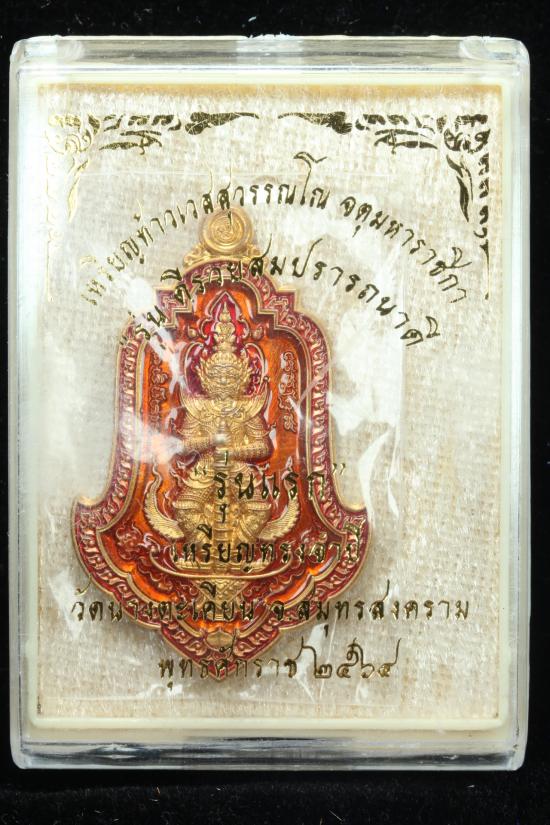 เหรียญท้าวเวสสุวรรณโณ จตุมหาราชิกา
"รุ่น ตีรวยสมปรารถนาดี"
"รุ่นแรก"
เหรียญทรงจำปี
วัดนางตะเคียน จ.สมุทรสงคราม
พุทธศักราช ๒๕๖๔